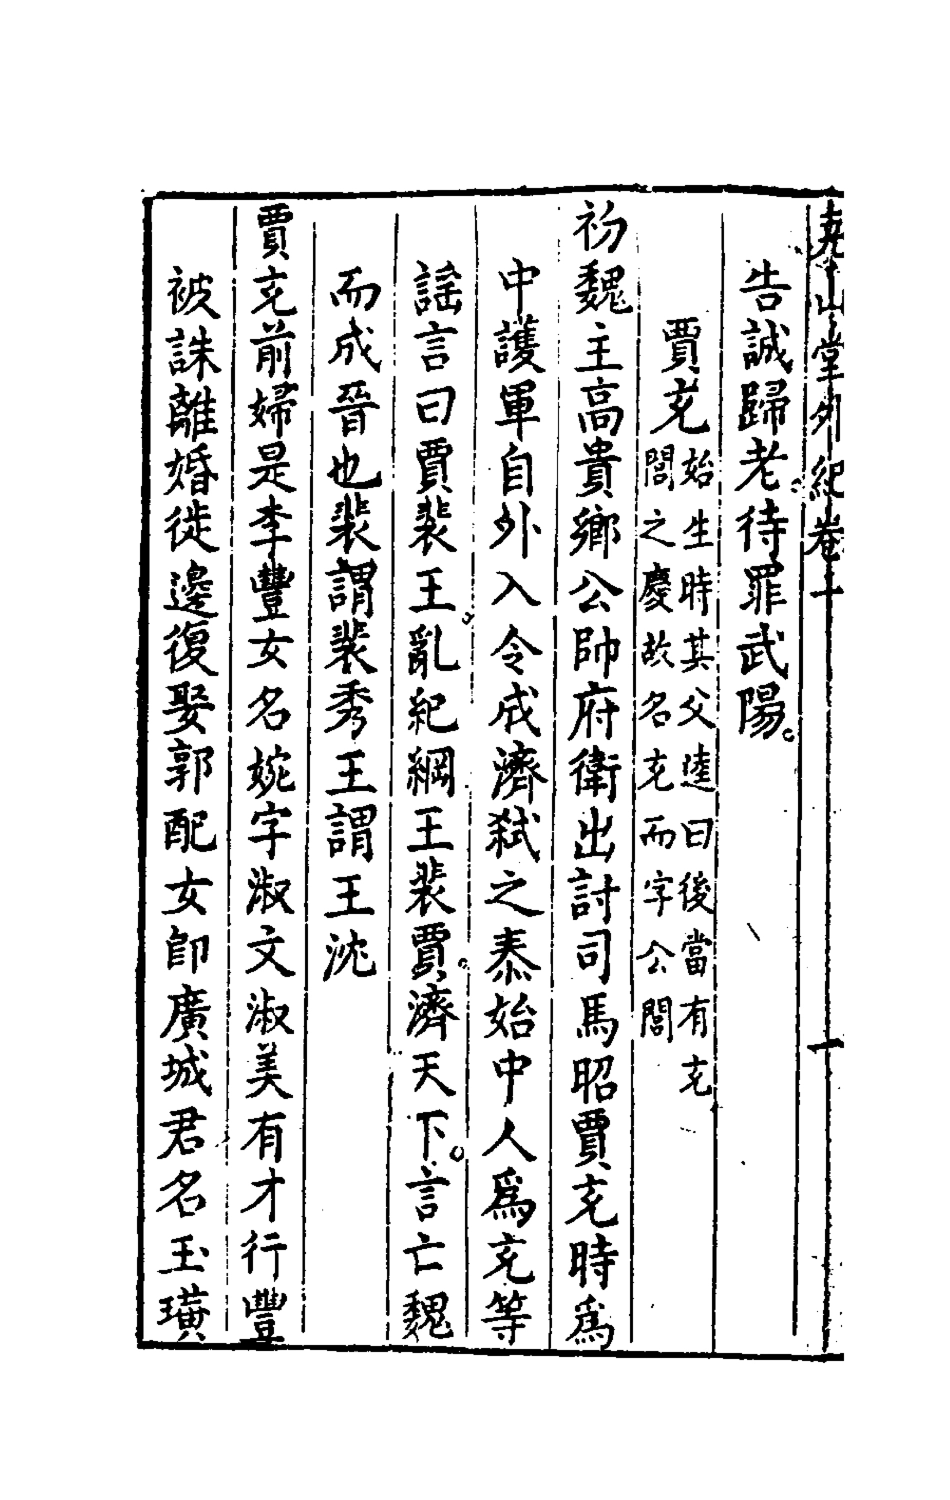 堯山堂外紀卷十 一
告誠歸老待罪武陽。
賈充
始生時其父逵曰後當有充
閭之慶故名充而字公閭
初魏主高貴鄉公帥府衛出討司馬昭賈充時爲
中護軍自外入令成濟弒之泰始中人爲充等
謡言曰賈裴王。亂紀綱王裴賈。濟天下。言亡魏
而成晉也裴謂裴秀王謂王沈
賈充前婦是李豐女名婉字淑文淑美有才行豐
被誅離婚徙邊復娶郭配女卽廣城君名玉璜